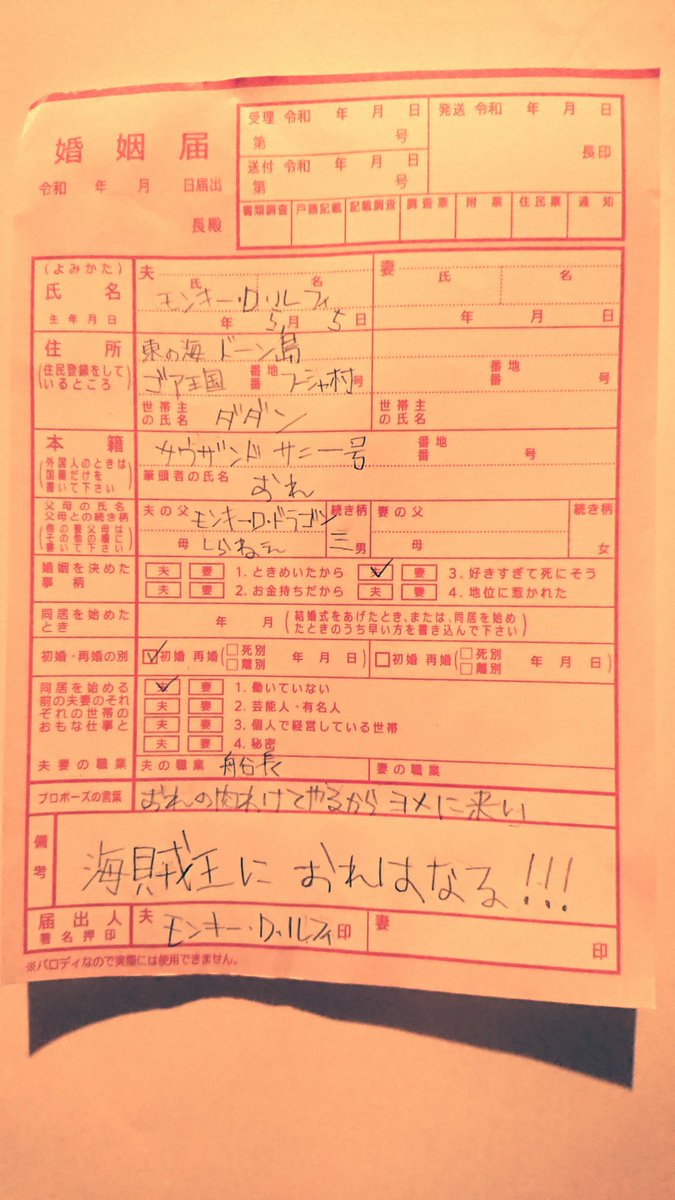 婚姻届
令和 年 月 日届出
長殿
受理 令和 年 月 日
第 号
送付 令和 年 月 日
第 号
発送 令和 年 月 日
長印
書類調査 戸籍記載 記載調査 調査票 附票 住民票 通知
(よみかた)
氏名
生年月日
夫 氏 名
モンキー・D・ルフィ
年 5月 5日
妻 氏 名
年 月 日
住所
(住民登録をしているところ)
東の海 ドーン島
ゴア王国 番地 番 フーシャ村 号
世帯主の氏名 ダダン
番地 番 号
世帯主の氏名
本籍
(外国人のときは国籍だけを書いて下さい)
サウザンド サニー号 番地 番 号
筆頭者の氏名 おれ
父母の氏名
父母との続き柄
(他の養父母はその他の欄に書いて下さい)
夫の父 モンキー・D・ドラゴン 続き柄
母 しらねェ 三男
妻の父 続き柄
母 女
婚姻を決めた事柄
夫 妻 1. ときめいたから 夫 妻 3. 好きすぎて死にそう
夫 妻 2. お金持ちだから 夫 妻 4. 地位に惹かれた
同居を始めたとき
年 月 (結婚式をあげたとき、または、同居を始めたときのうち早い方を書き込んで下さい)
初婚・再婚の別
初婚 再婚 (死別 離別 年 月 日)
初婚 再婚 (死別 離別 年 月 日)
同居を始める前の夫妻のそれぞれの世帯のおもな仕事と
夫 妻 1. 働いていない
夫 妻 2. 芸能人・有名人
夫 妻 3. 個人で経営している世帯
夫 妻 4. 秘密
夫妻の職業
夫の職業 船長
妻の職業
プロポーズの言葉
おれの肉わけてやるからヨメに来い
備考
海賊王に おれはなる!!!
届出人
署名押印
夫 モンキー・D・ルフィ 印
妻 印
※パロディなので実際には使用できません。